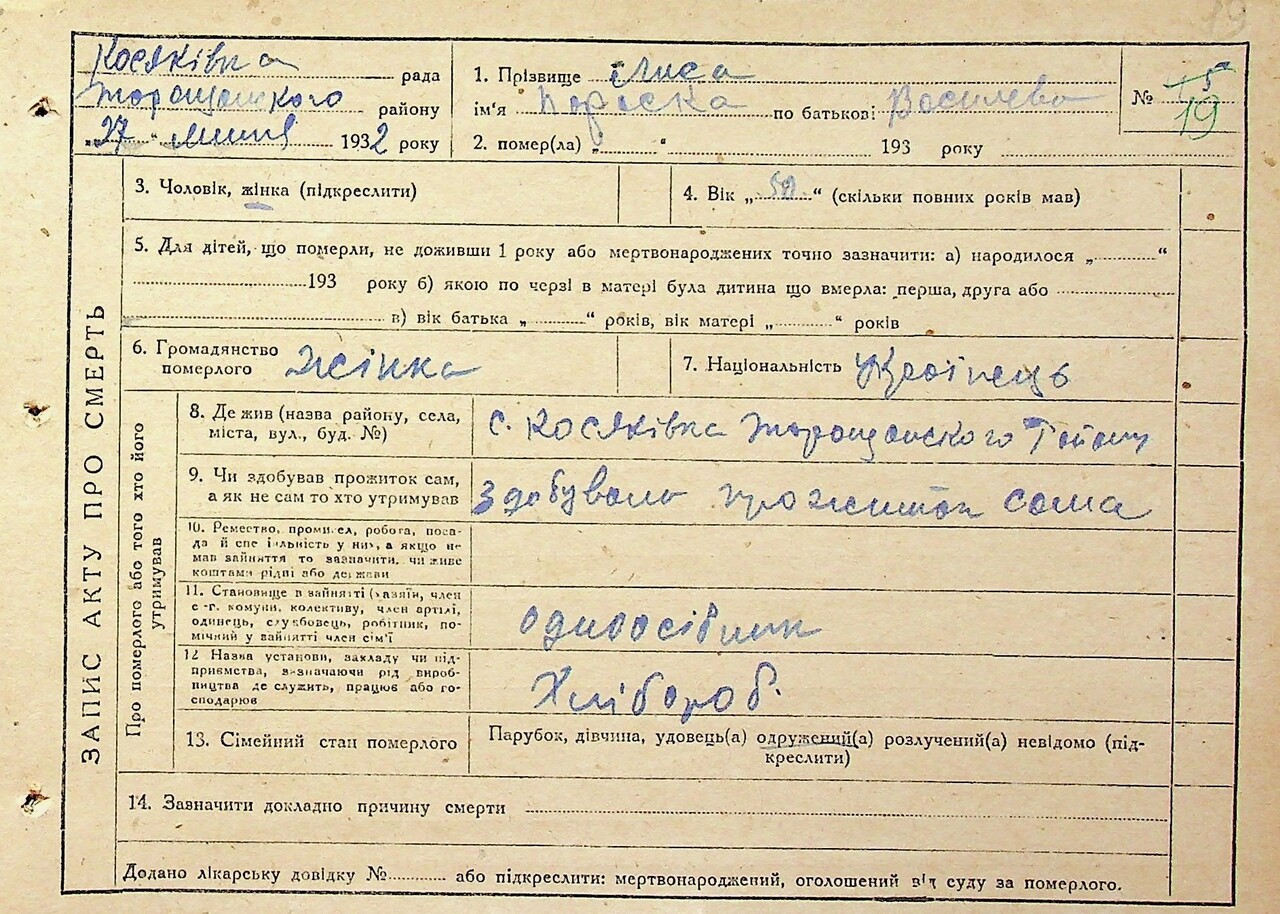 19
Косяківка рада
Таращанського району
„27“ липня 1932 року
1. Прізвище Лиса
ім'я Параска по батькові Василева
№ 15
19
2. помер(ла) „ “ 193 року
3. Чоловік, жінка (підкреслити)
4. Вік „ “ (скільки повних років мав)
5. Для дітей, що померли, не доживши 1 року або мертвонароджених точно зазначити: а) народилося „ “
193 року б) якою по черзі в матері була дитина що вмерла: перша, друга або
в) вік батька „ “ років, вік матері „ “ років
6. Громадянство
померлого жінка
7. Національність Українець
ЗАПИС АКТУ ПРО СМЕРТЬ
Про померлого або того хто його
утримував
8. Де жив (назва району, села,
міста, вул., буд. №)
с. Косяківка Таращанського Району
9. Чи здобував прожиток сам,
а як не сам то хто утримував
Здобувала прожиток сама
10. Ремество, промисел, робота, поса-
да й спеціяльність у них, а якщо не
мав зайняття то зазначити, чи живе
коштами рідні або держави
11. Становище в зайнятті (хазяїн, член
с.-г. комуни, колективу, член артілі,
одинець, службовець, робітник, по-
мічний у зайнятті член сім'ї
одноосібник
12 Назва установи, закладу чи під-
приємства, зазначаючи рід вироб-
ництва де служить, працює або го-
сподарює
Хлібороб.
13. Сімейний стан померлого
Парубок, дівчина, удовець(а) одружений(а) розлучений(а) невідомо (під-
креслити)
14. Зазначити докладно причину смерти
Додано лікарську довідку № або підкреслити: мертвонароджений, оголошений від суду за померлого.